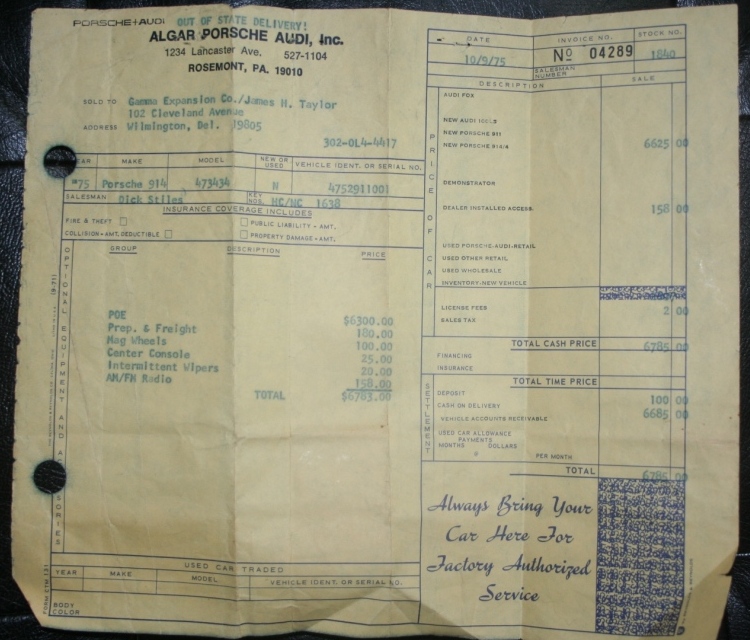 PORSCHE+AUDI OUT OF STATE DELIVERY!
ALGAR PORSCHE AUDI, Inc.
1234 Lancaster Ave. 527-1104
ROSEMONT, PA. 19010
SOLD TO Gamma Expansion Co./James H. Taylor
102 Cleveland Avenue
ADDRESS Wilmington, Del. 19805
302-OL4-4417
DATE INVOICE NO. STOCK NO.
10/9/75 No 04289 1840
SALESMAN NUMBER
CAR MAKE MODEL NEW OR USED VEHICLE IDENT. OR SERIAL NO.
'75 Porsche 914 473434 N 4752911001
SALESMAN Dick Stiles KEY NOS. HC/NC 1638
INSURANCE COVERAGE INCLUDES
FIRE & THEFT PUBLIC LIABILITY - AMT.
COLLISION - AMT. DEDUCTIBLE PROPERTY DAMAGE - AMT.
OPTIONAL EQUIPMENT AND ACCESSORIES
GROUP DESCRIPTION PRICE
POE $6300.00
Prep. & Freight 180.00
Mag Wheels 100.00
Center Console 25.00
Intermittent Wipers 20.00
AM/FM Radio 158.00
TOTAL $6783.00
USED CAR TRADED
YEAR MAKE MODEL VEHICLE IDENT. OR SERIAL NO.
BODY COLOR
DESCRIPTION SALE
PRICE OF CAR
AUDI FOX
NEW AUDI 100LS
NEW PORSCHE 911
NEW PORSCHE 914/4 6625 00
DEMONSTRATOR
DEALER INSTALLED ACCESS. 158 00
USED PORSCHE-AUDI-RETAIL
USED OTHER RETAIL
USED WHOLESALE
INVENTORY-NEW VEHICLE
LICENSE FEES 2 00
SALES TAX
TOTAL CASH PRICE 6785 00
FINANCING
INSURANCE
TOTAL TIME PRICE
SETTLEMENT
DEPOSIT 100 00
CASH ON DELIVERY 6685 00
VEHICLE ACCOUNTS RECEIVABLE
USED CAR ALLOWANCE
PAYMENTS
MONTHS DOLLARS
@ PER MONTH
TOTAL 6785 00
Always Bring Your
Car Here For
Factory Authorized
Service